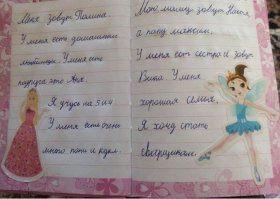 Меня зовут Полина.
У меня есть домашний
любимец. У меня есть
подруга это Аня.
Я учусь на 5 и 4
У меня есть очень
много поти и кукл.
Мою маму зовут Настя,
а папу максим.
У меня ест сестра и зовут
Вика. У меня
хорошая семья.
Я хочу стать